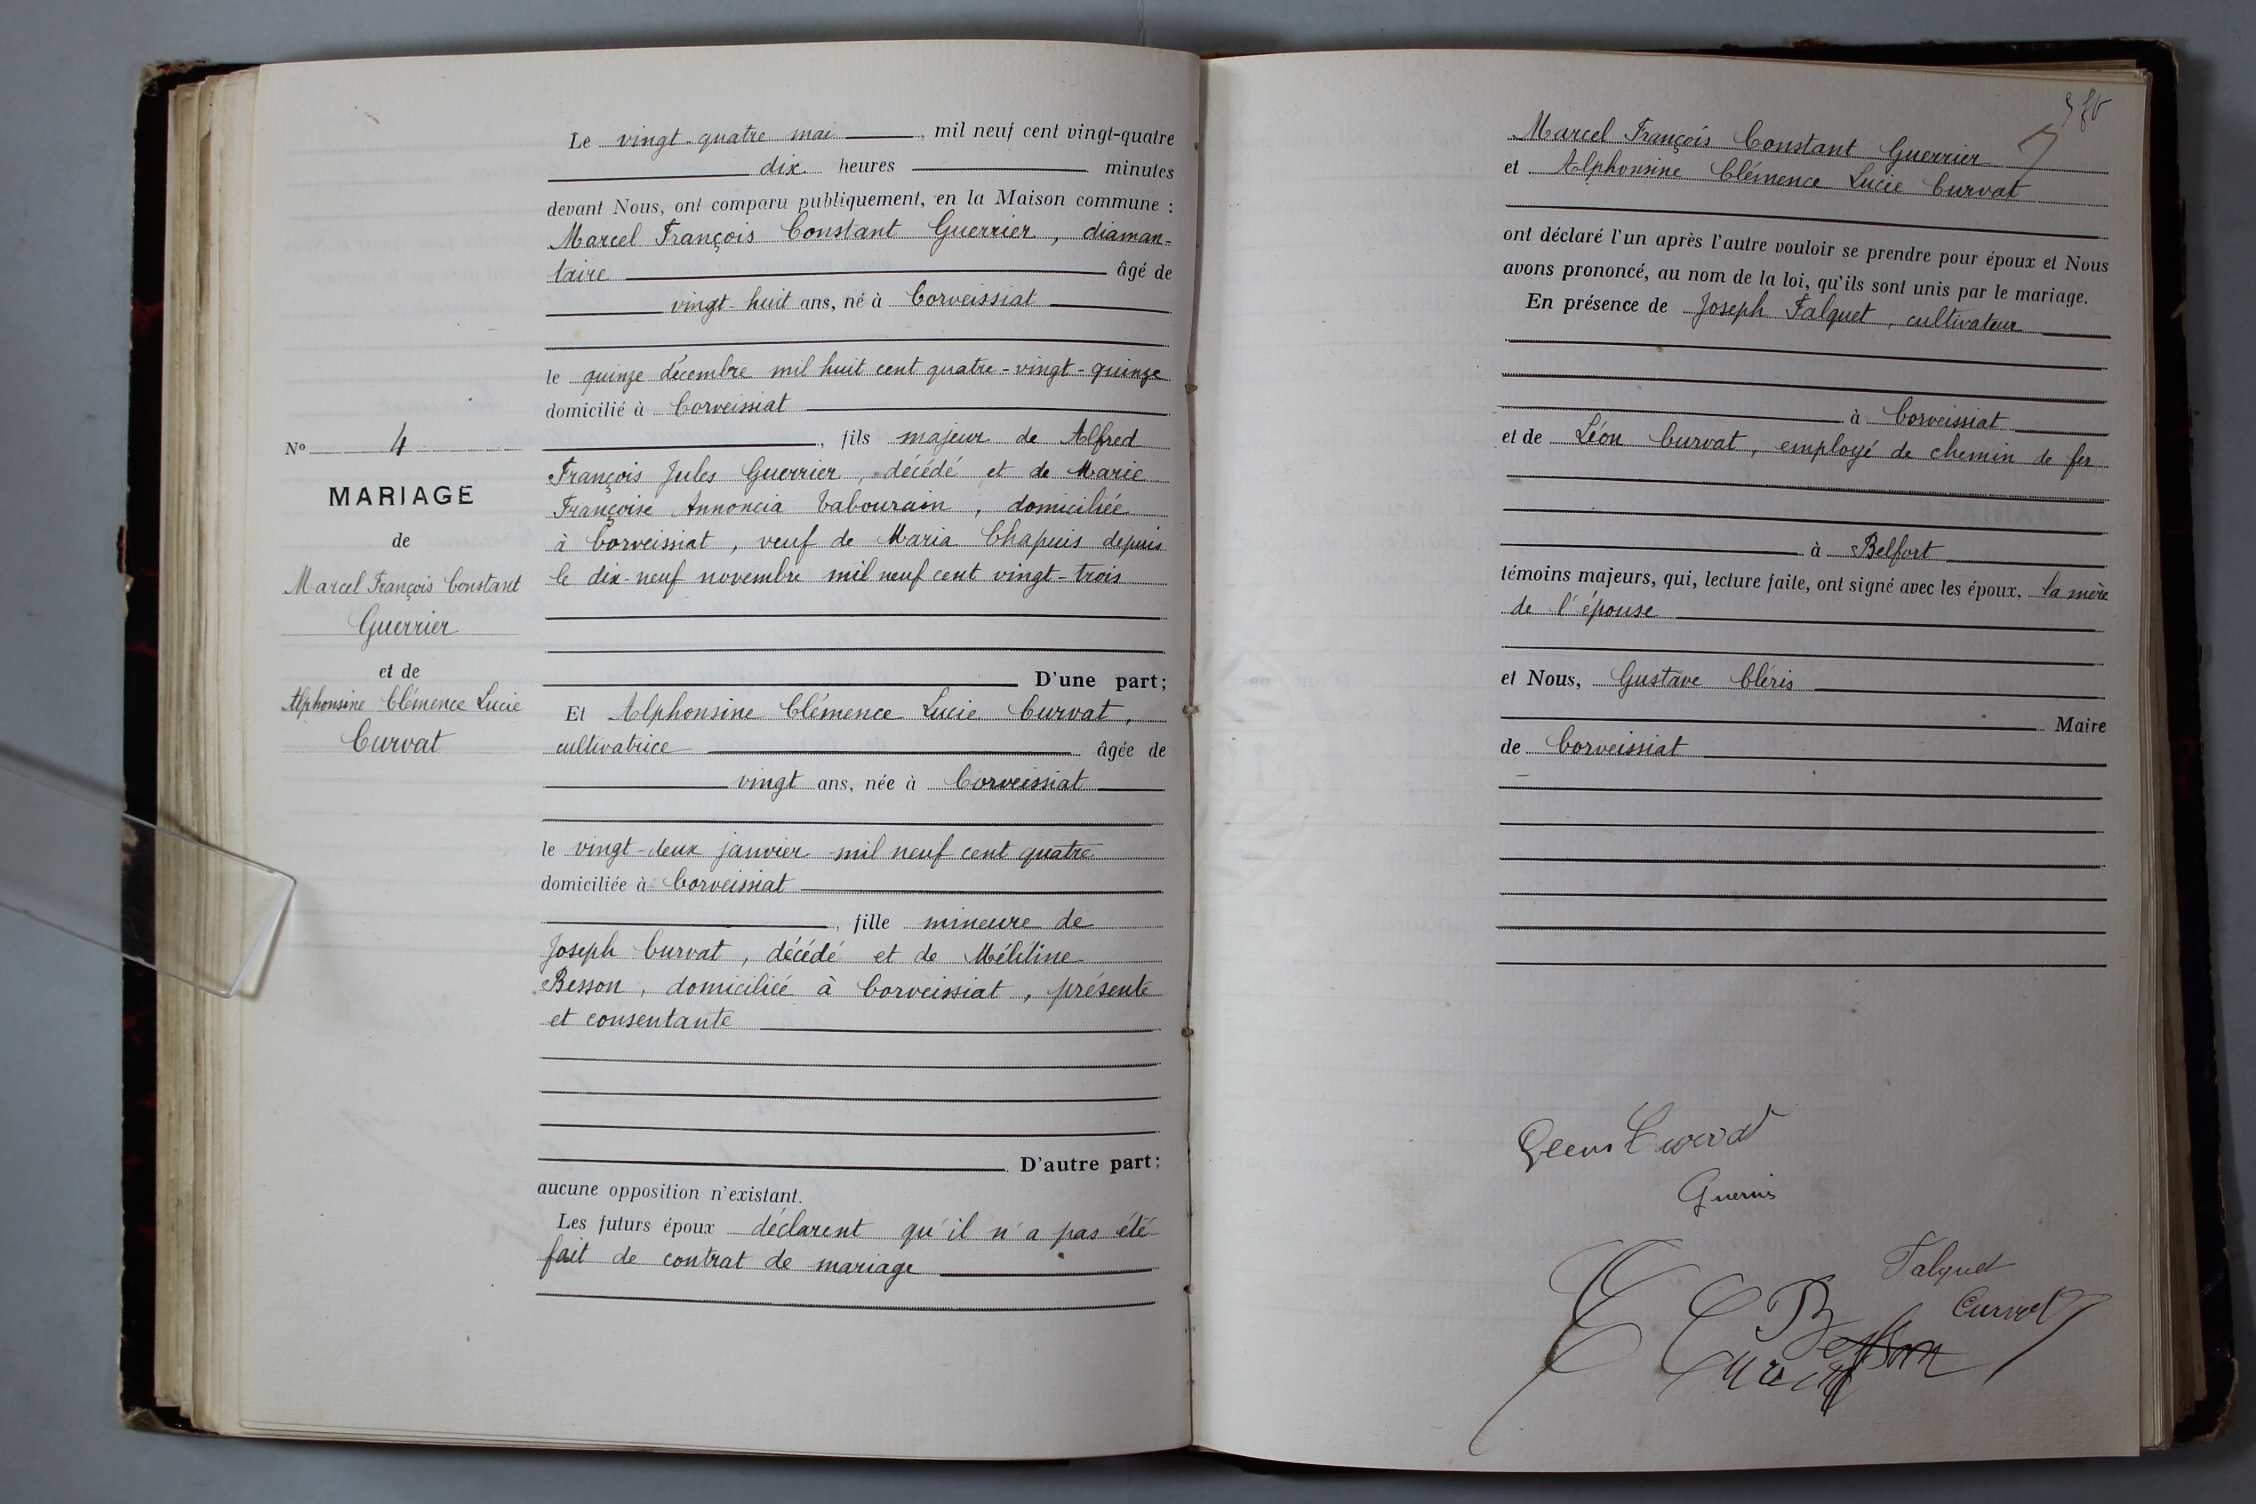 Nº 4
MARIAGE
de
Marcel François Constant
Guerrier
et de
Alphonsine Clémence Lucie
Curvat
Le vingt-quatre mai, mil neuf cent vingt-quatre
dix heures minutes
devant Nous, ont comparu publiquement, en la Maison commune :
Marcel François Constant Guerrier, diaman-
taire âgé de
vingt-huit ans, né à Corveissiat
le quinze décembre mil huit cent quatre-vingt-quinze
domicilié à Corveissiat
, fils majeur de Alfred
François Jules Guerrier, décédé et de Marie
Françoise Annoncia Tabourain, domiciliée
à Corveissiat, veuf de Maria Chapuis depuis
le dix-neuf novembre mil neuf cent vingt-trois
D'une part;
Et Alphonsine Clémence Lucie Curvat,
cultivatrice âgée de
vingt ans, née à Corveissiat
le vingt-deux janvier mil neuf cent quatre
domiciliée à Corveissiat
, fille mineure de
Joseph Curvat, décédé et de Méletine
Besson, domiciliée à Corveissiat, présente
et consentante
D'autre part;
aucune opposition n'existant.
Les futurs époux déclarent qu'il n'a pas été
fait de contrat de mariage
Marcel François Constant Guerrier
et Alphonsine Clémence Lucie Curvat
ont déclaré l'un après l'autre vouloir se prendre pour époux et Nous
avons prononcé, au nom de la loi, qu'ils sont unis par le mariage.
En présence de Joseph Falquet, cultivateur
à Corveissiat
et de Léon Curvat, employé de chemin de fer
à Belfort
témoins majeurs, qui, lecture faite, ont signé avec les époux, la mère
de l'épouse
et Nous, Gustave Cléris
Maire
de Corveissiat
Curvat
Falquet
Curvat
Besson